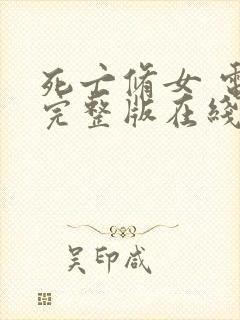 死亡修女 電
完整版在綫
吴印咸